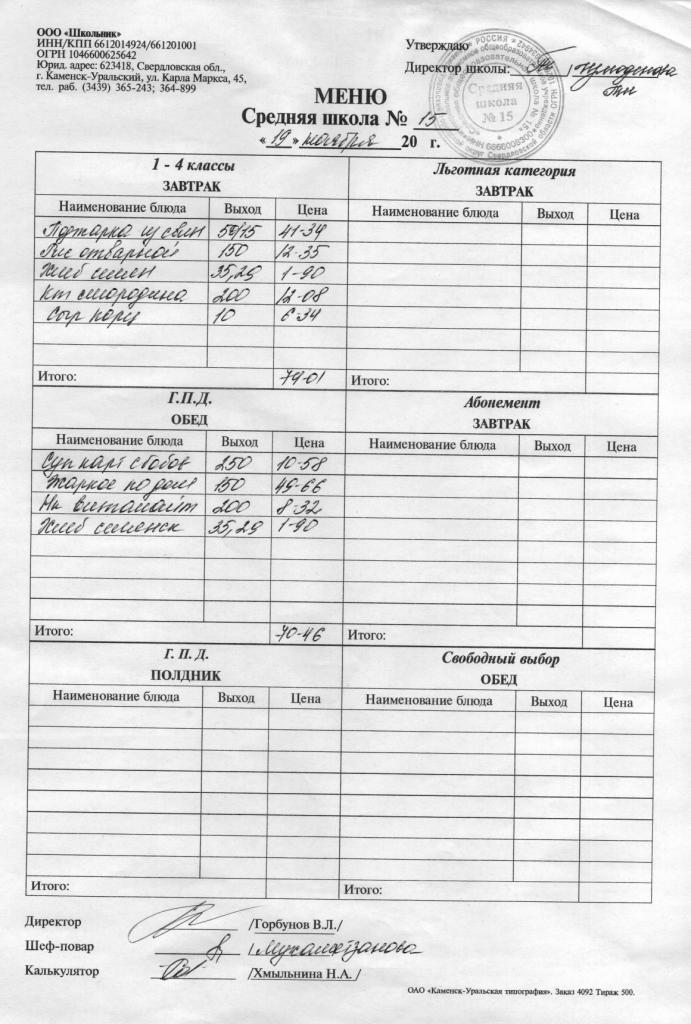 ООО «Школьник»
ИНН/КПП 6612014924/661201001
ОГРН 1046600625642
Юрид. адрес: 623418, Свердловская обл.,
г. Каменск-Уральский, ул. Карла Маркса, 45,
тел. раб. (3439) 365-243; 364-899
Утверждаю
Директор школы:
Средняя
школа
№ 15
МЕНЮ
Средняя школа № 15
« 19 » ноября 20 г.
1 - 4 классы
ЗАВТРАК
Наименование блюда Выход Цена
Поджарка из свин 50/15 41-34
Рис отварной 150 12-35
Хлеб 35,29 1-90
Кт смородина 200 12-08
Сыр порц 10 6-34
Итого: 79-01
Льготная категория
ЗАВТРАК
Наименование блюда Выход Цена
Итого:
Г.П.Д.
ОБЕД
Наименование блюда Выход Цена
Суп карт с бобов 250 10-58
Жаркое по дом 150 49-66
Нк витошк 200 8-32
Хлеб 35,29 1-90
Итого: 70-46
Абонемент
ЗАВТРАК
Наименование блюда Выход Цена
Итого:
Г. П. Д.
ПОЛДНИК
Наименование блюда Выход Цена
Итого:
Свободный выбор
ОБЕД
Наименование блюда Выход Цена
Итого:
Директор /Горбунов В.Л./
Шеф-повар
Калькулятор /Хмыльнина Н.А. /
ОАО «Каменск-Уральская типография». Заказ 4092 Тираж 500.